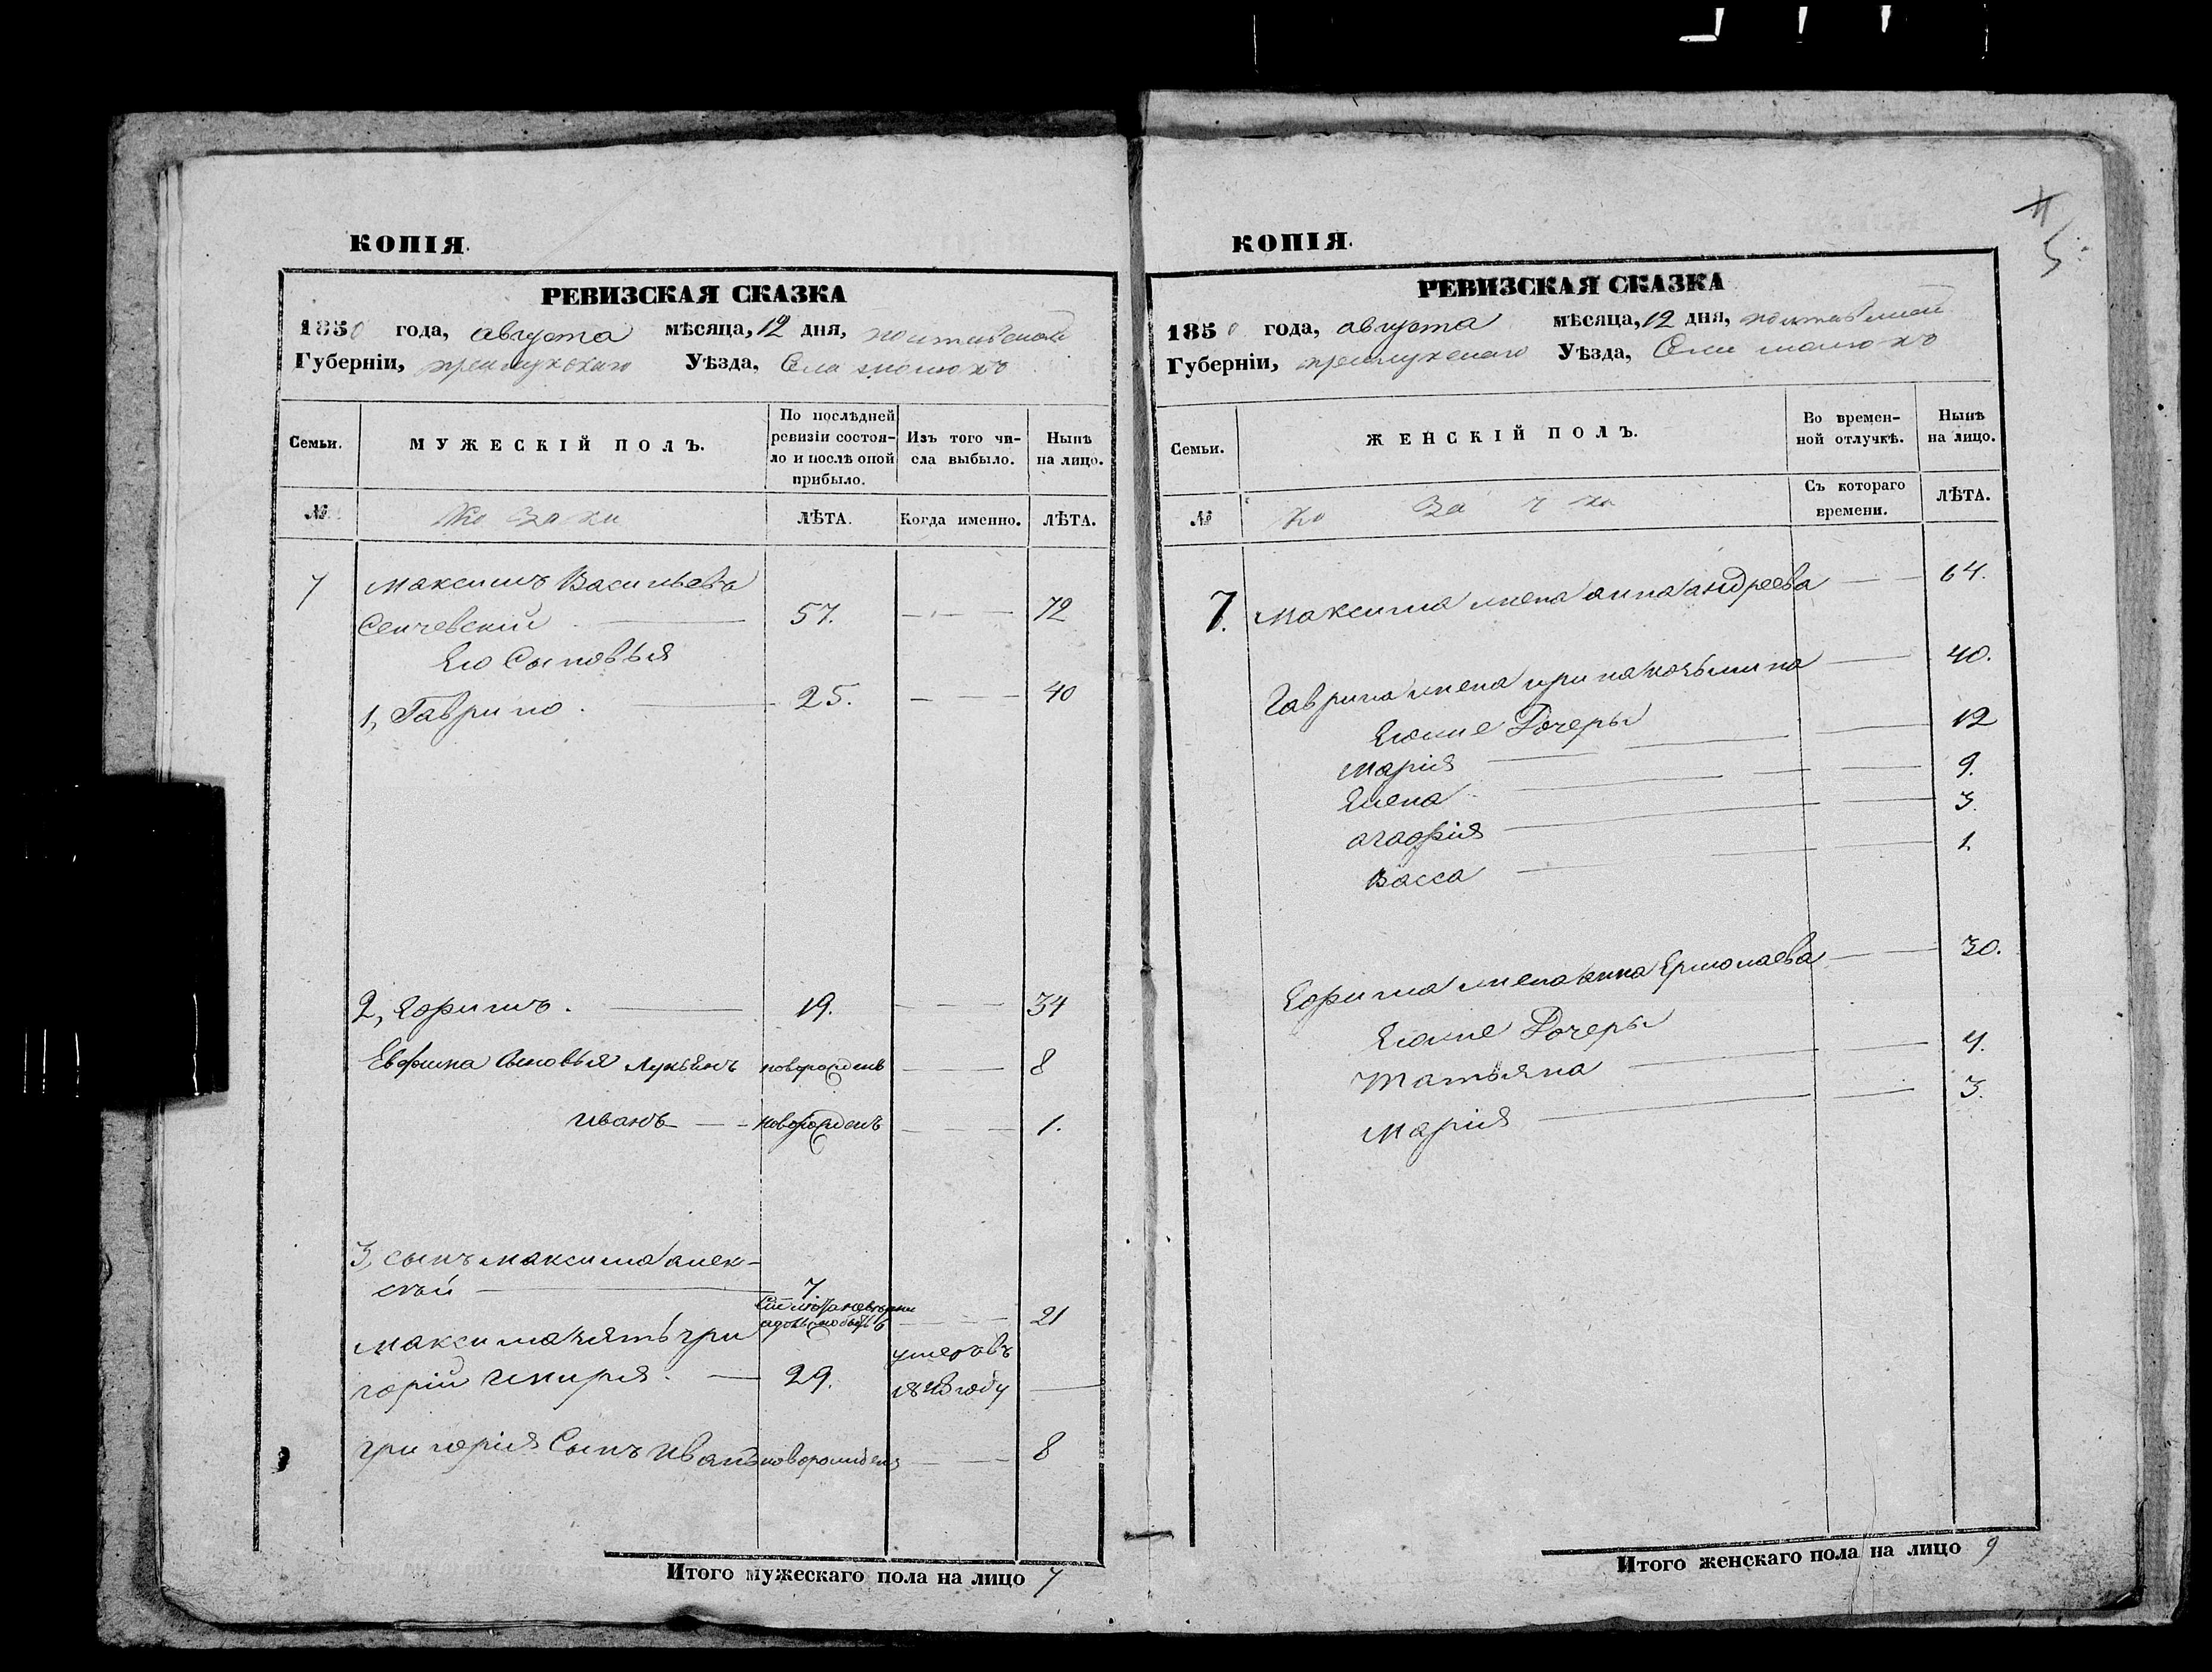 КОПІЯ.
РЕВИЗСКАЯ СКАЗКА
1850 года, августа мѣсяца, 12 дня, полтавской
Губерніи, прилукскаго Уѣзда, Села
Семьи. МУЖЕСКІЙ ПОЛЪ. По послѣдней ревизіи состояло и послѣ оной прибыло. Изъ того числа выбыло. Нынѣ на лицо.
№ Козаки ЛѢТА. Когда именно. ЛѢТА.
7 Максимъ Васильевъ
57. 72
Его Сыновья
1, Гаврило. 25. 40
2, Ефимъ. 19. 34
Евфима Сыновья Лукьянъ новорожденъ 8
Иванъ новорожденъ 1.
3, сынъ максима алек-
сѣй 7. 21
максима зять гри
горій 29. умеръ въ
184 году
григорія Сынъ Иванъ новорожденъ 8
Итого мужескаго пола на лицо 7
КОПІЯ.
5
РЕВИЗСКАЯ СКАЗКА
1850 года, августа мѣсяца, 12 дня, полтавской
Губерніи, прилукскаго Уѣзда, Села
Семьи. ЖЕНСКІЙ ПОЛЪ. Во временной отлучкѣ. Нынѣ на лицо.
№ Козачки Съ котораго времени. ЛѢТА.
7. Максима жена анна андреева 64.
Гаврила жена ирина козьмина 40.
Егоже Дочеры
Марія 12
Елена 9.
агафія 3.
Васса 1.
Ефима жена анна Ермолаева 30.
Егоже Дочеры
Татьяна 4.
Марія 3.
Итого женскаго пола на лицо 9